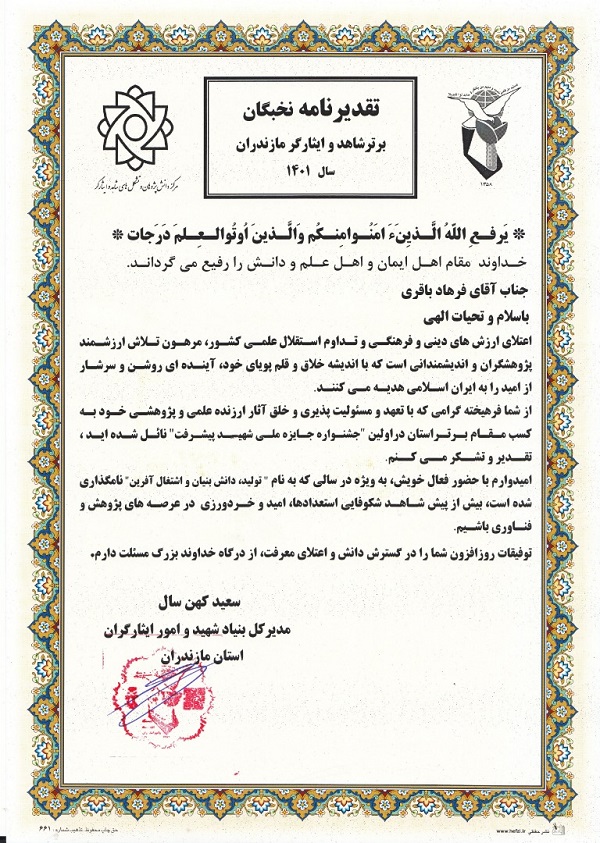 تقدیرنامه نخبگان
برتر شاهد و ایثارگر مازندران
سال ۱۴۰۱
۱۳۵۸
مرکز دانش پژوهان و تشکل های شاهد و ایثارگر
* یَرفَعِ اللّهُ الَّذینَ ءَامَنُوا مِنکُم وَالَّذینَ اُوتُوالعِلمَ دَرَجات *
خداوند مقام اهل ایمان و اهل علم و دانش را رفیع می گرداند.
جناب آقای فرهاد باقری
باسلام و تحیات الهی
اعتلای ارزش های دینی و فرهنگی و تداوم استقلال علمی کشور، مرهون تلاش ارزشمند
پژوهشگران و اندیشمندانی است که با اندیشه خلاق و قلم پویای خود، آینده ای روشن و سرشار
از امید را به ایران اسلامی هدیه می کنند.
از شما فرهیخته گرامی که با تعهد و مسئولیت پذیری و خلق آثار ارزنده علمی و پژوهشی خود به
کسب مقام برتر استان در اولین "جشنواره جایزه ملی شهید پیشرفت" نائل شده اید ،
تقدیر و تشکر می کنم.
امیدوارم با حضور فعال خویش، به ویژه در سالی که به نام " تولید، دانش بنیان و اشتغال آفرین" نامگذاری
شده است، بیش از پیش شاهد شکوفایی استعدادها، امید و خردورزی در عرصه های پژوهش و
فناوری باشیم.
توفیقات روزافزون شما را در گسترش دانش و اعتلای معرفت، از درگاه خداوند بزرگ مسئلت دارم.
سعید کهن سال
مدیر کل بنیاد شهید و امور ایثارگران
استان مازندران
نشر حفظی www.hefzi.ir
حق چاپ محفوظ تذهیب شماره: ۶۶۱